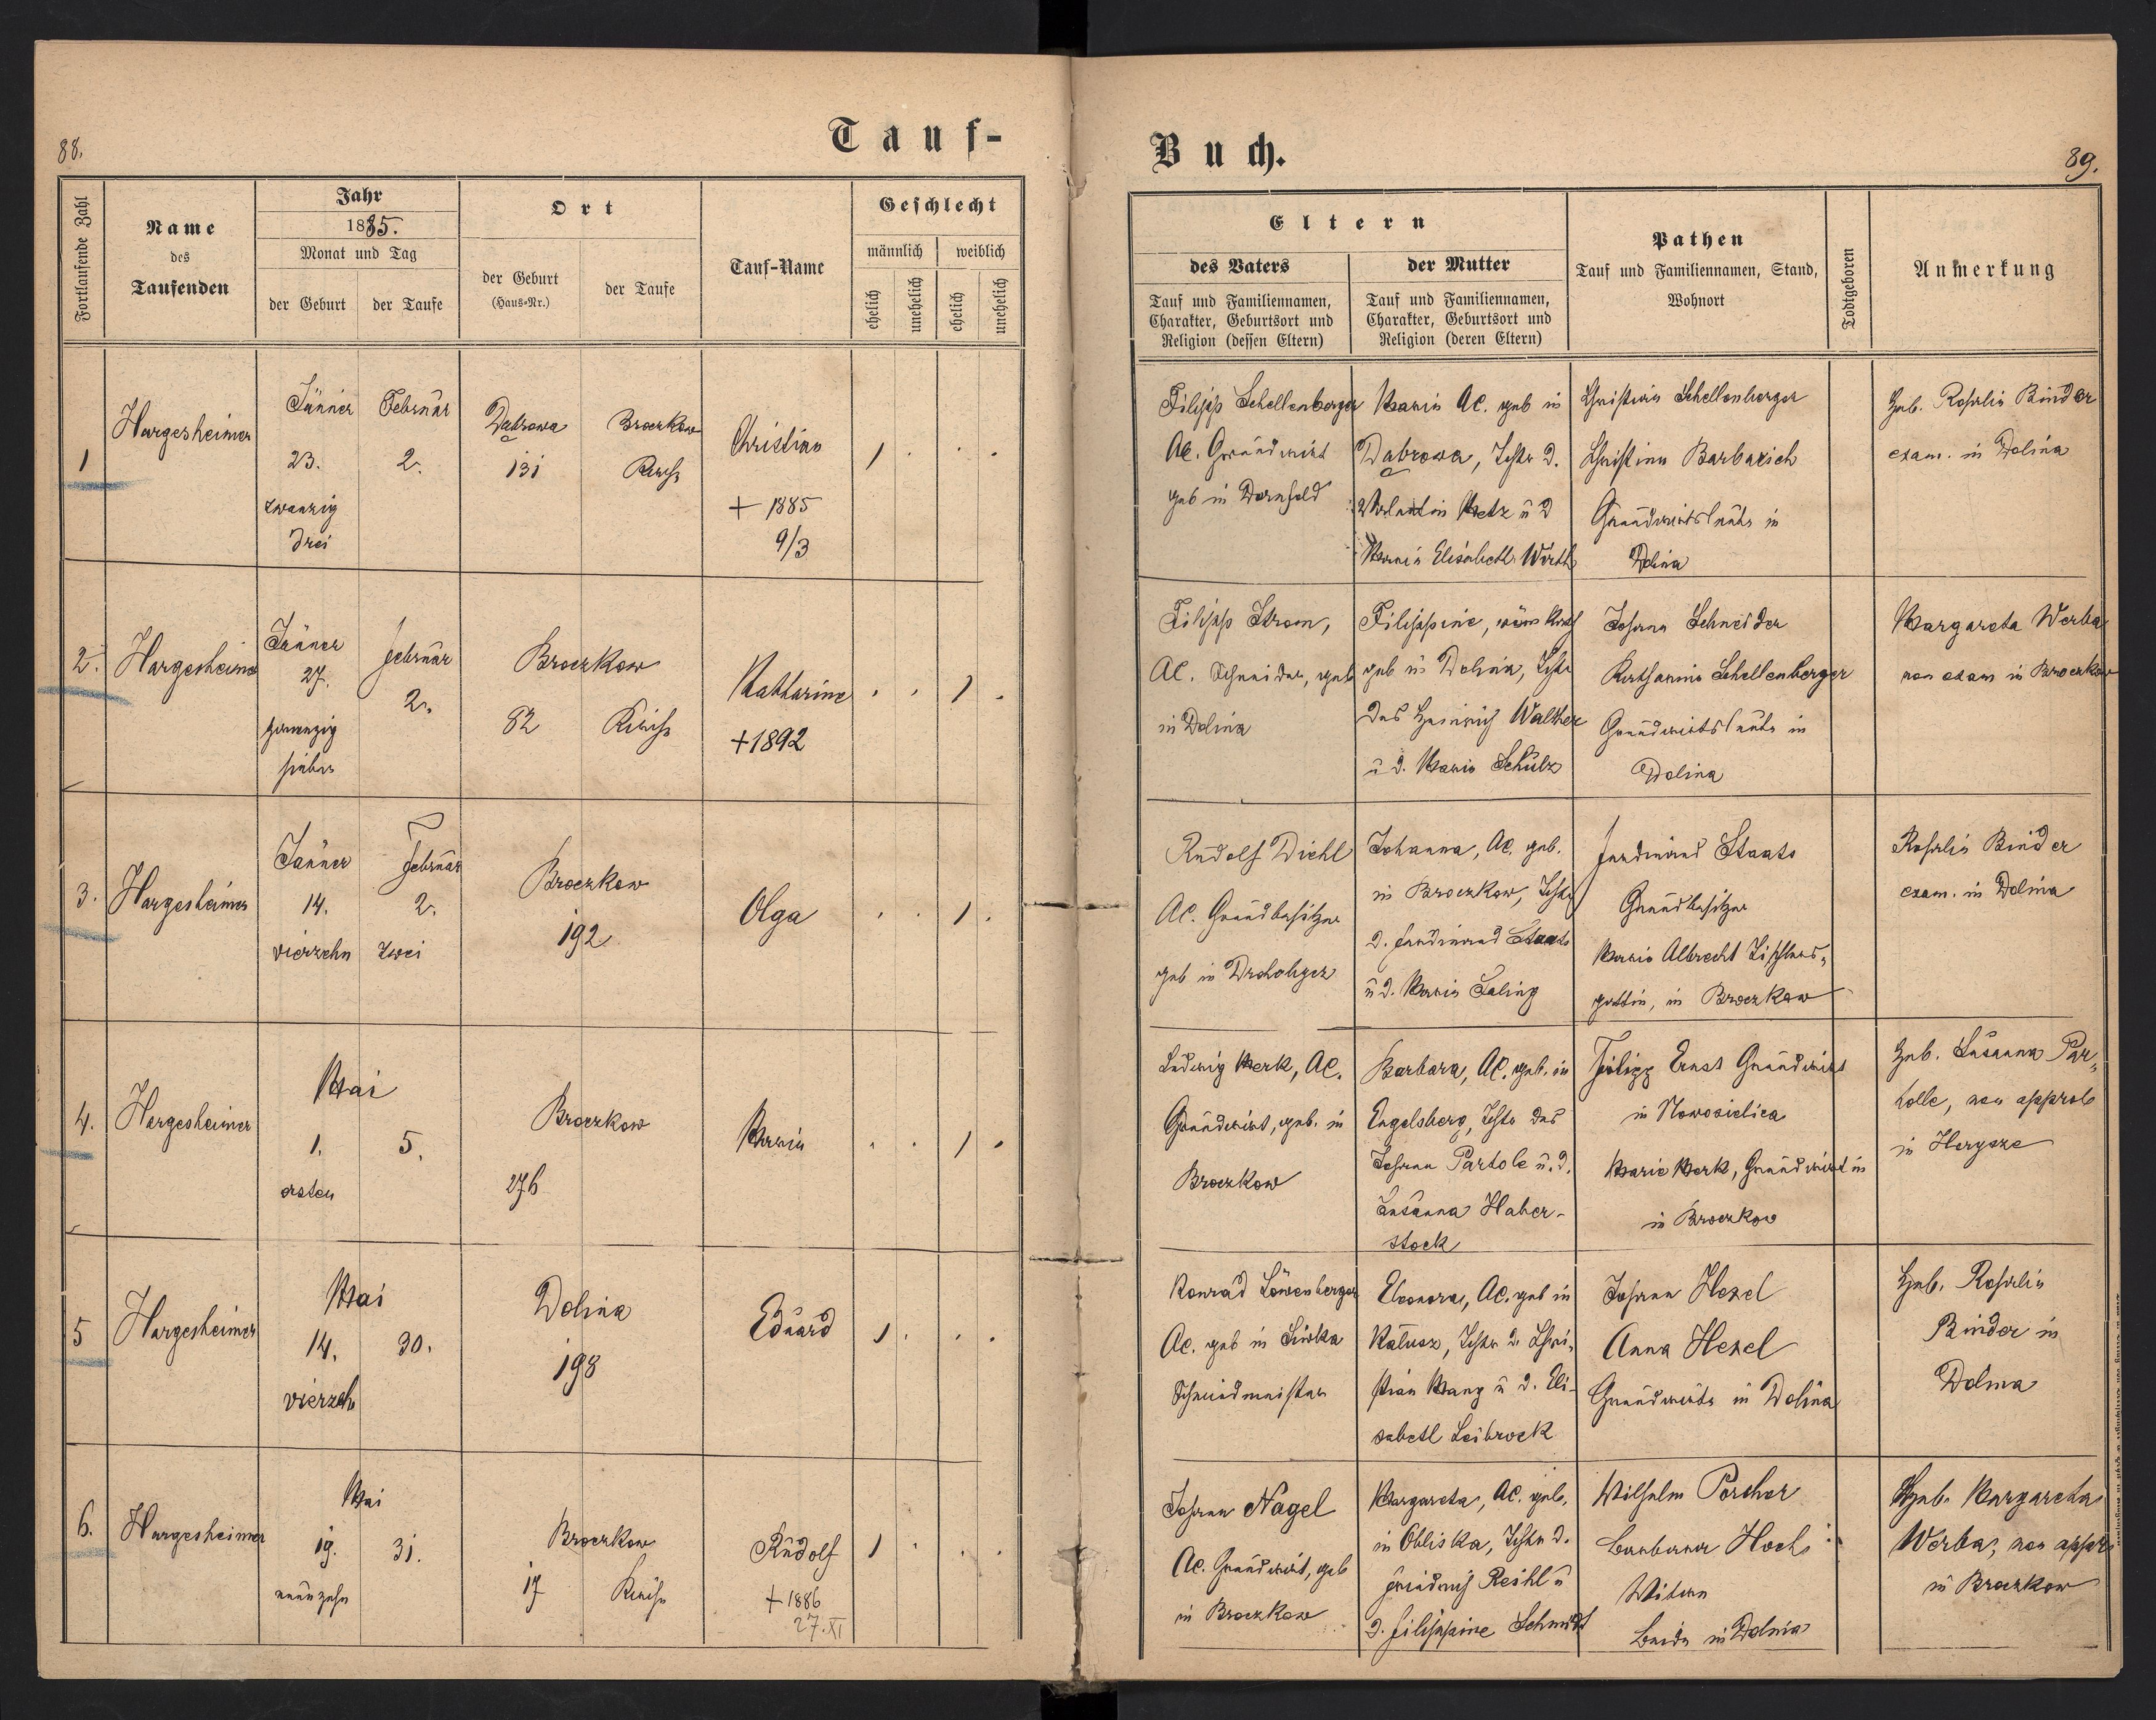 88.
Tauf-
Fortlaufende Zahl
Name
des
Taufenden
Jahr
1885.
Monat und Tag
der Geburt
der Taufe
Ort
der Geburt
(Haus-Nr.)
der Taufe
Tauf-Name
Geschlecht
männlich
weiblich
ehelich
unehelich
ehelich
unehelich
1
Hargesheimer
Jänner
23.
zwanzig
drei
Februar
2.
Dąbrowa
131
Broczkow
Kirche
Christian
+ 1885
9/3
2.
Hargesheimer
Jänner
27.
zwanzig
sieben
Februar
2.
Broczkow
82
Kirche
Katharine
+ 1892
3.
Hargesheimer
Jänner
14.
vierzehn
Februar
2.
zwei
Broczkow
192
Olga
4.
Hargesheimer
Mai
1.
5.
ersten
Broczkow
276
Maria
5
Hargesheimer
Mai
14.
30.
vierzehn
Dolina
198
Eduard
6.
Hargesheimer
Mai
19.
31.
neunzehn
Broczkow
17
Kirche
Rudolf
+ 1886
27.XI
Buch.
89.
Eltern
des Vaters
Tauf und Familiennamen,
Charakter, Geburtsort und
Religion (dessen Eltern)
der Mutter
Tauf und Familiennamen,
Charakter, Geburtsort und
Religion (deren Eltern)
Pathen
Tauf und Familiennamen, Stand,
Wohnort
Todtgeboren
Anmerkung
Filipp Schellenberger
AC. Grundwirt
geb in Dornfeld
Maria AC. geb in
Dąbrowa, Tchtr d.
Valentin Metz u d
Maria Elisabeth Wirth
Christian Schellenberger
Christina Barbarich
Grundwirtsleute in
Dolina
Heb. Rosalia Binder
exam. in Dolina
Filipp Strom,
AC. Schneider, geb
in Dolina
Filippine, geb in Dolina, Tchtr
des Heinrich Walther
u d. Maria Schulz
Johann Schneider
Katharina Schellenberger
Grundwirtsleute in
Dolina
Margareta Werba
non exam in Broczkow
Rudolf Diehl
AC. Grundbesitzer
geb in Drohobycz
Johanna, AC. geb.
in Broczkow, Tchtr
d. Ferdinand Staats
u d. Maria Saling
Ferdinand Staats
Grundbesitzer
Maria Albrecht Tischlers-
gattin, in Broczkow
Rosalia Binder
exam. in Dolina
Ludwig Merk, AC.
Grundwirt, geb. in
Broczkow
Barbara, AC. geb. in
Engelsberg, Tchtr des
Johann Partole u. d.
Susanna Haber-
stock
Filipp Ernst Grundwirt
in Nowosielica
Marie Merk, Grundwirtin
in Broczkow
Heb. Susanna Par-
tolle, non approb
in Hoysze
Konrad Löwenberger
AC. geb in
Schmiedmeister
Eleonora, AC. geb in
Kalusz, Tchtr d. Chri-
stian Mang u d. Eli-
sabeth Leibrock
Johann Hexel
Anna Hexel
Grundwirte in Dolina
Heb. Rosalia
Binder in
Dolina
Johann Nagel
AC. Grundwirt, geb
in Broczkow
Margareta, AC. geb.
in Obliska, Tchtr d.
Friedrich Reihl u
d. Filippine Schmidt
Wilhelm Porcher
Barbara Hoch
Witwe
Beide in Dolina
Heb. Margareta
Werba, non appr
in Broczkow